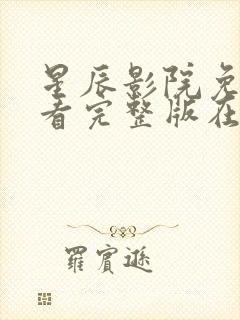 星辰影院免
看完整版在
羅賓遜